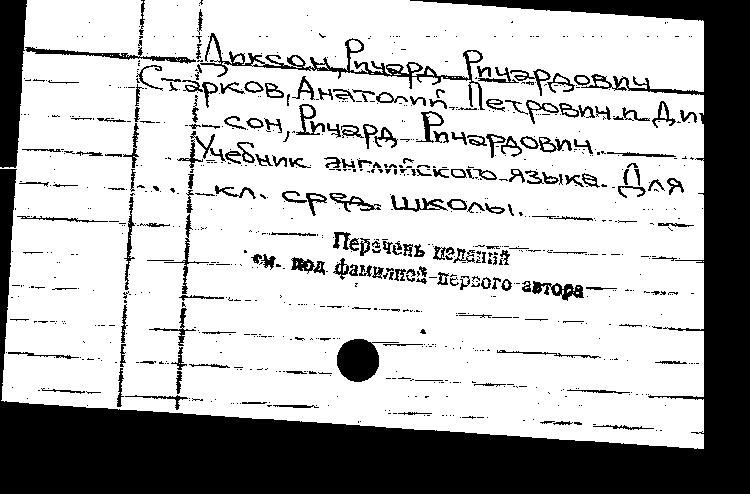 Диксон, Ричард Ричардович
Старков, Анатолий Петрович и Дик
сон, Ричард Ричардович.
Учебник английского языка. Для
... кл. сред. школы.
Перечень изданий
см. под фамилией первого автора